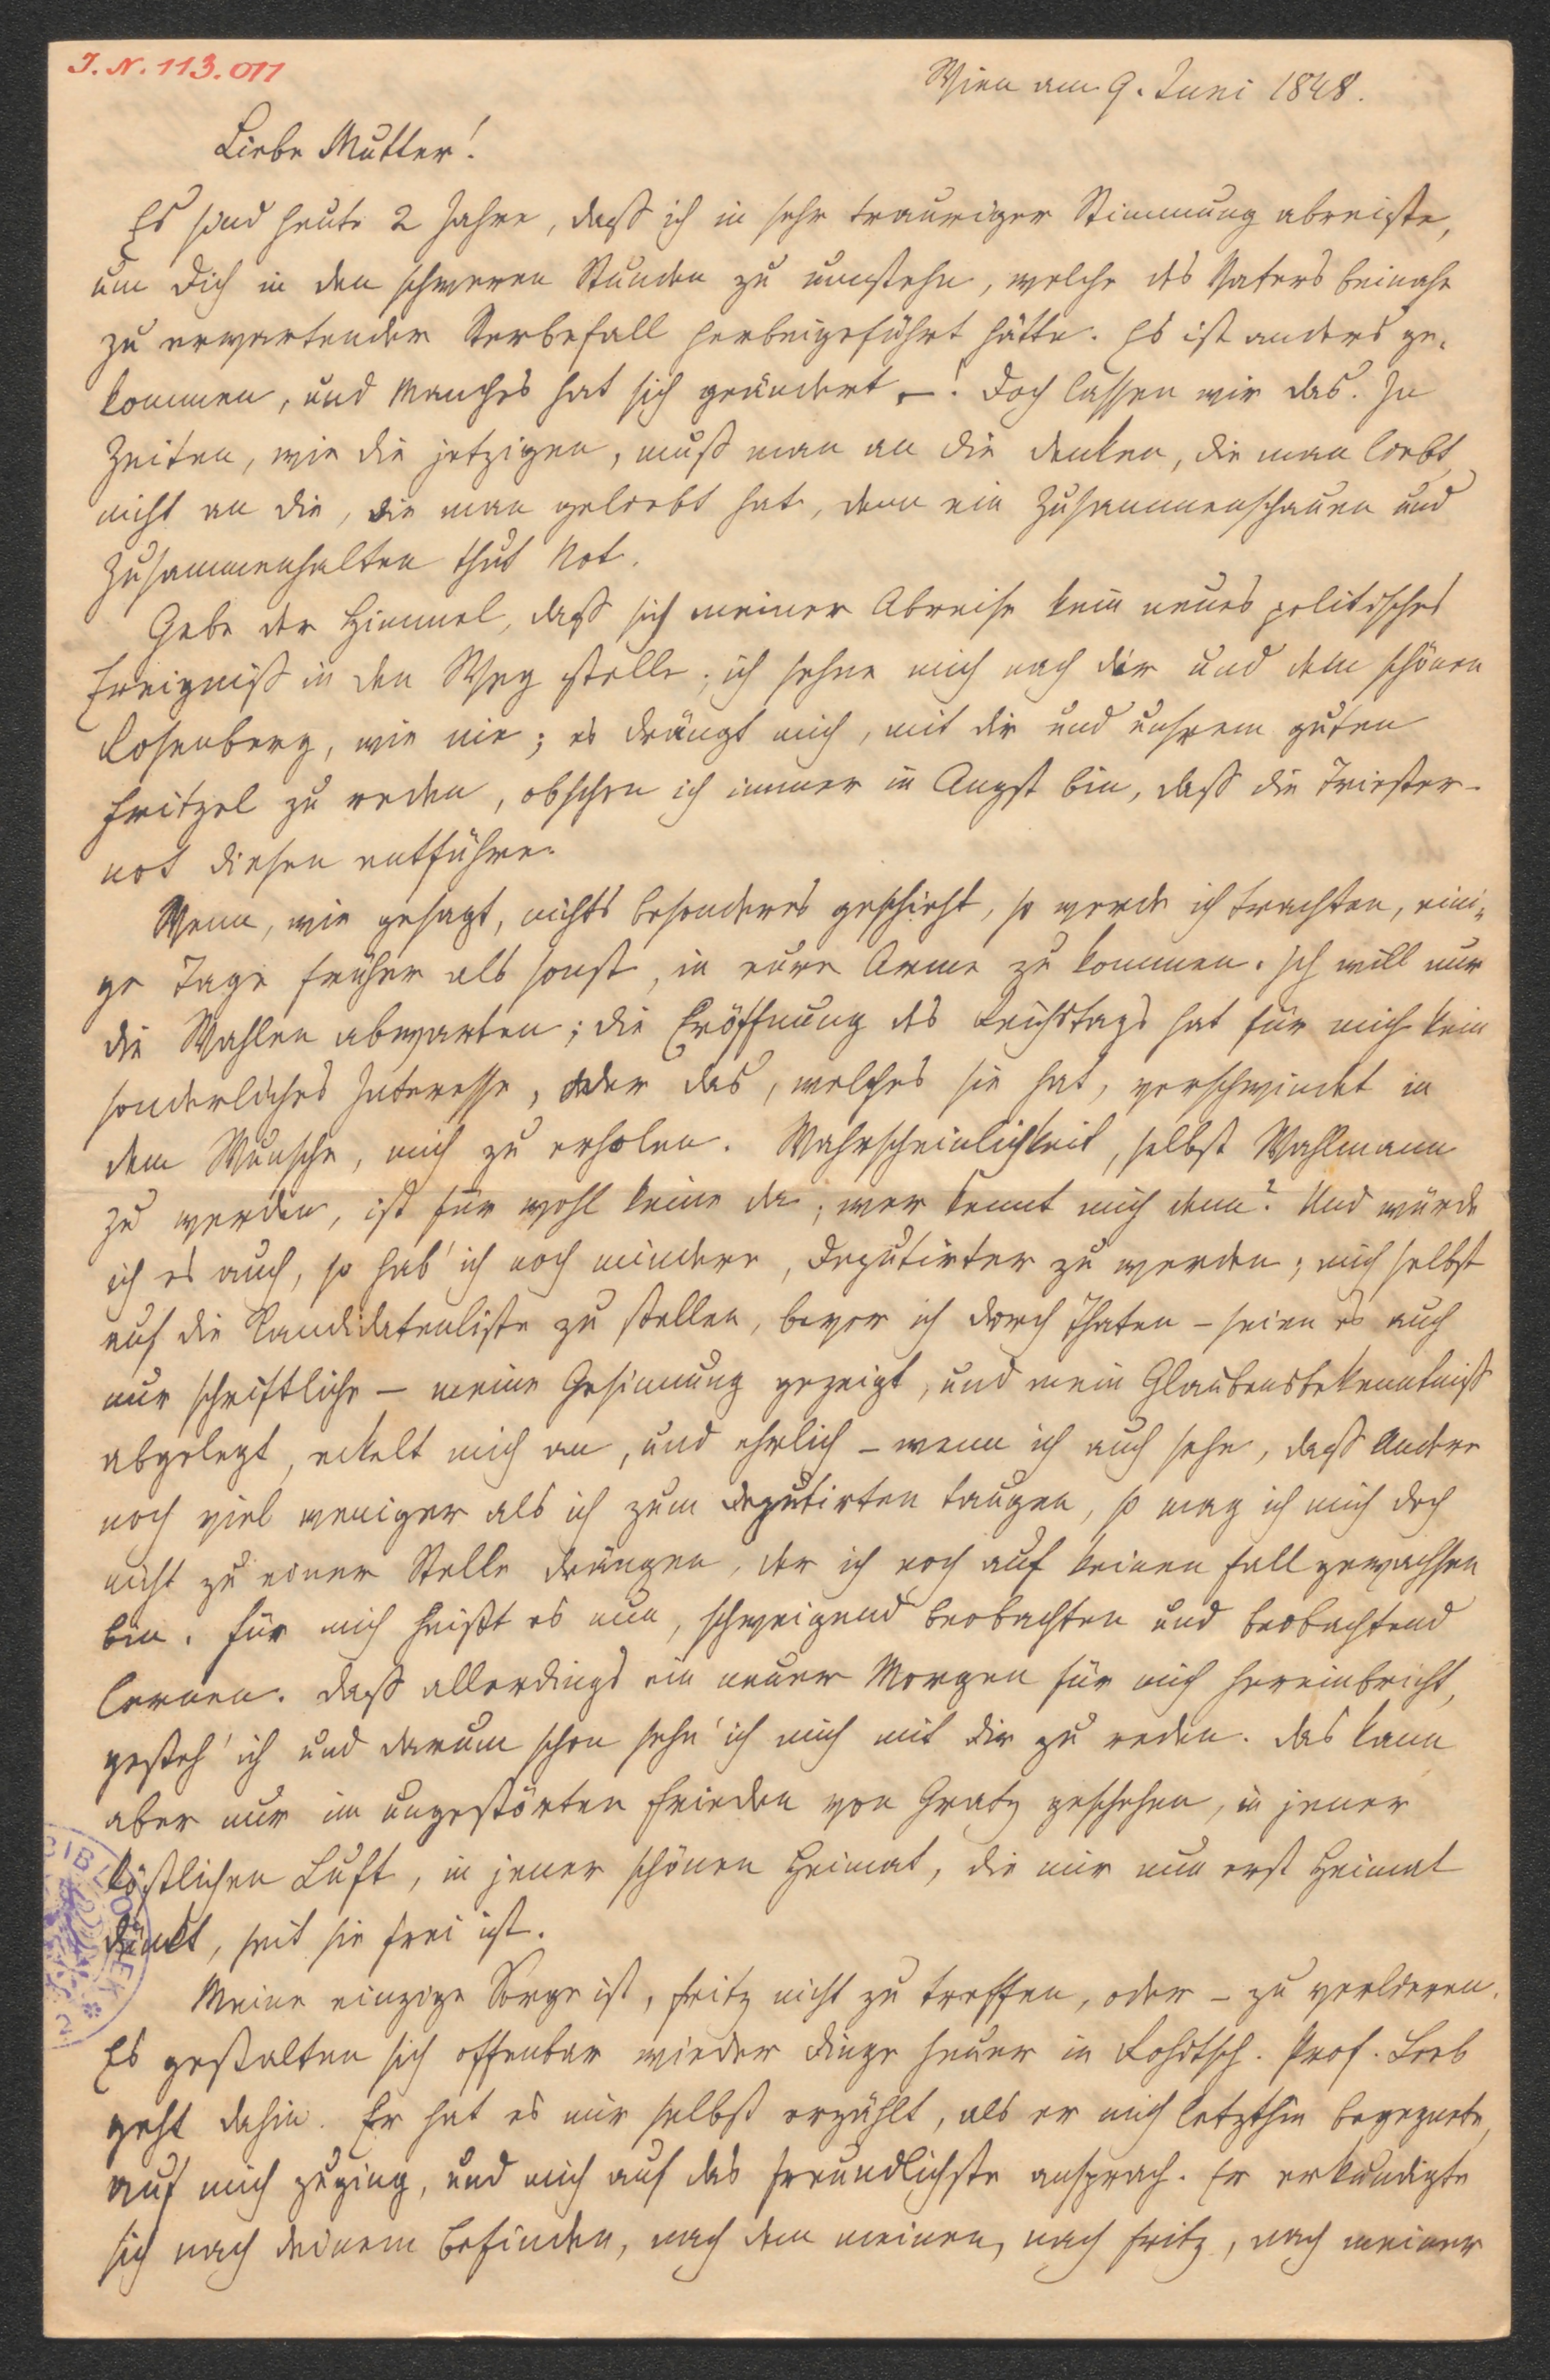 J. N. 113.011
Wien am 9. Juni 1848.
Liebe Mutter!
Es sind heute 2 Jahre, daß ich in sehr trauriger Stimmung abreiste,
um dich in den schweren Stunden zu umstehn, welche des Vaters beinahe
zu erwartender Sterbefall herbeigeführt hätte. Es ist anders ge-
kommen, und Manches hat sich geändert –! Doch lassen wir das. In
Zeiten, wie die jetzigen, muß man an die denken, die man liebt,
nicht an die, die man geliebt hat, denn ein Zusammenschauen und
Zusammenhalten thut Not.
Gebe der Himmel, daß sich meiner Abreise kein neues politisches
Ereigniß in den Weg stelle; ich sehne mich nach dir und dem schönen
Rosenberg, wie nie; es drängt mich, mit dir und unsrem guten
Fritzel zu reden, obschon ich immer in Angst bin, daß die Triester-
not diesen entführe.
Wenn, wie gesagt, nichts besonderes geschieht, so werde ich trachten, eini-
ge Tage früher als sonst, in eure Arme zu kommen. Ich will nur
die Wahlen abwarten; die Eröffnung des Reichstags hat für mich kein
sonderliches Interesse, oder das, welches sie hat, verschwindet in
dem Wunsche, mich zu erholen. Wahrscheinlichkeit, selbst Wahlmann
zu werden, ist für wohl keine da; wer kennt mich denn? Und würde
ich es auch, so hab' ich noch mindere, Deputirter zu werden; mich selbst
auf die Kandidatenliste zu stellen, bevor ich durch Thaten – seien es auch
nur schriftliche – meine Gesinnung gezeigt, und mein Glaubensbekenntniß
abgelegt, eckelt mich an, und ehrlich – wenn ich auch sehe, daß Andre
noch viel weniger als ich zum Deputirten taugen, so mag ich mich doch
nicht zu einer Stelle drängen, der ich noch auf keinen Fall gewachsen
bin. Für mich heißt es nun, schweigend beobachten und beobachtend
lernen. Daß allerdings ein neuer Morgen für mich hereinbricht,
gesteh' ich und darum schon sehn' ich mich mit dir zu reden. Das kann
aber nur im ungestörten Frieden von Gratz geschehen, in jener
köstlichen Luft, in jener schönen Heimat, die mir nun erst Heimat
dünkt, seit sie frei ist.
Meine einzige Sorge ist, Fritz nicht zu treffen, oder – zu verlieren.
Es gestalten sich offenbar wieder Dinge heuer in Rohitsch. Prof. Loeb
geht dahin. Er hat es mir selbst erzählt, als er mich letzthin begegnete,
auf mich zuging, und mich auf das freundlichste ansprach. Er erkundigte
sich nach deinem Befinden, nach dem meinen, nach Fritz, nach meiner